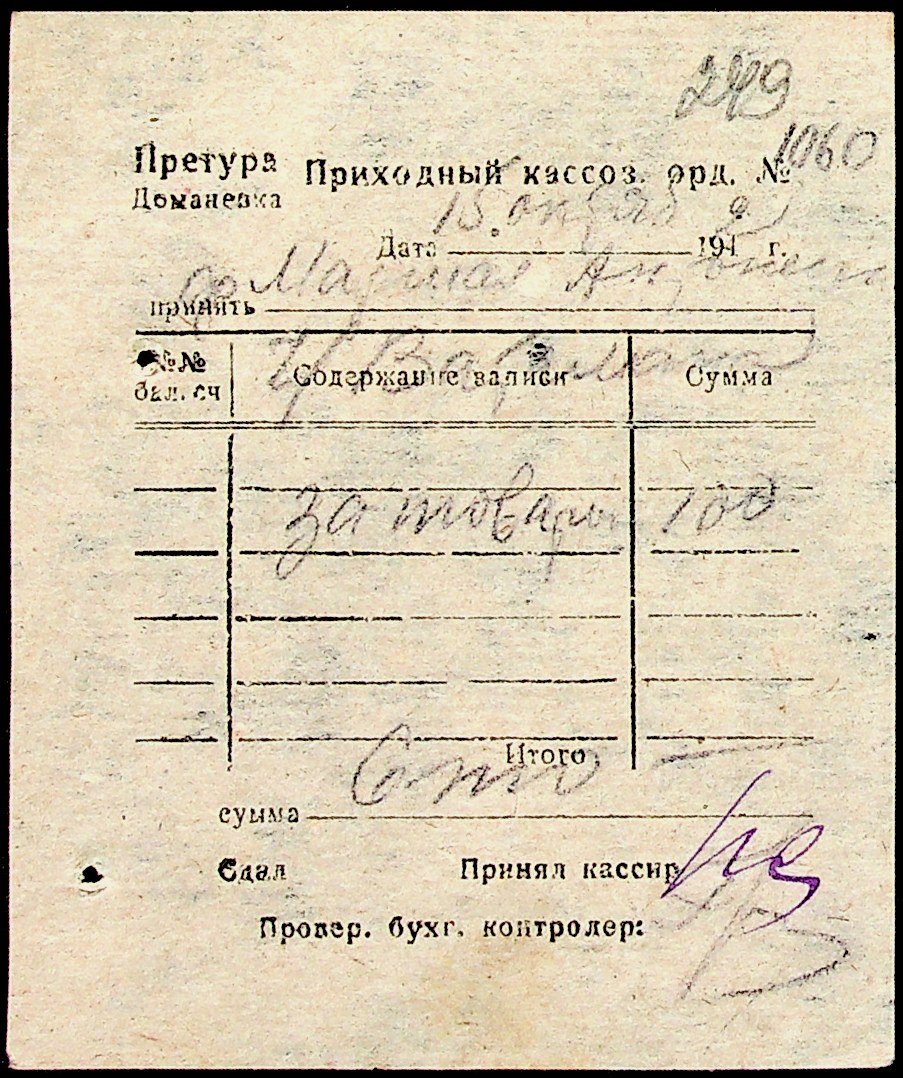 249
1060
Претура Приходный кассов. орд. №
Доманевка
15 октяб 2
Дата 194 г.
принять
№№ бал. сч Содержание записи Сумма
за товары 100
Итого
Сто
сумма
Сдал Принял кассир
Провер. бухг. контролер: